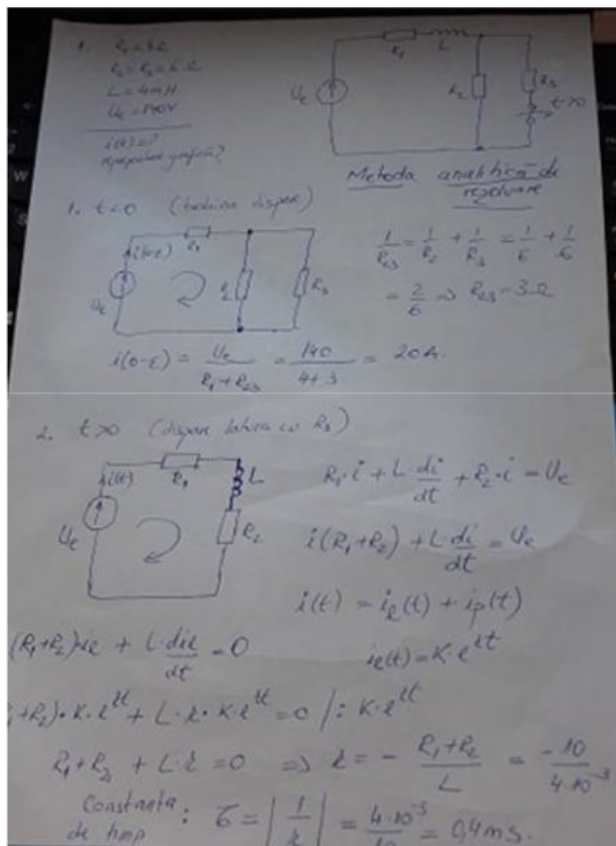 1. R₁ =
R₂ = R₃ = 6 Ω
L = 4mH
Ue = 140V
i(t) = ?
R₁
L
Ue
R₂
R₃
t>0
Metoda analitică de
rezolvare
1. t<0 (bobina dispare)
i(0-ε)
R₁
Ue
R₃
1/R₂₃ = 1/R₂ + 1/R₃ = 1/6 + 1/6
= 2/6 => R₂₃ = 3Ω
i(0-ε) = Ue/(R₁+R₂₃) = 140/(4+3) = 20A.
2. t>0 (dispare latura cu R₃)
i(t)
R₁
L
Ue
R₂
R₁·i + L·di/dt + R₂·i = Ue
i(R₁+R₂) + L·di/dt = Ue
i(t) = iℓ(t) + ip(t)
(R₁+R₂)·iℓ + L·diℓ/dt = 0
iℓ(t) = K·e^rt
+R₂)·K·e^rt + L·r·K·e^rt = 0 /: K·e^rt
R₁+R₂ + L·r = 0 => r = - (R₁+R₂)/L = -10/(4·10⁻³)
Constanta
de timp : σ = |1/r| = 4·10⁻³/10 = 0,4ms.